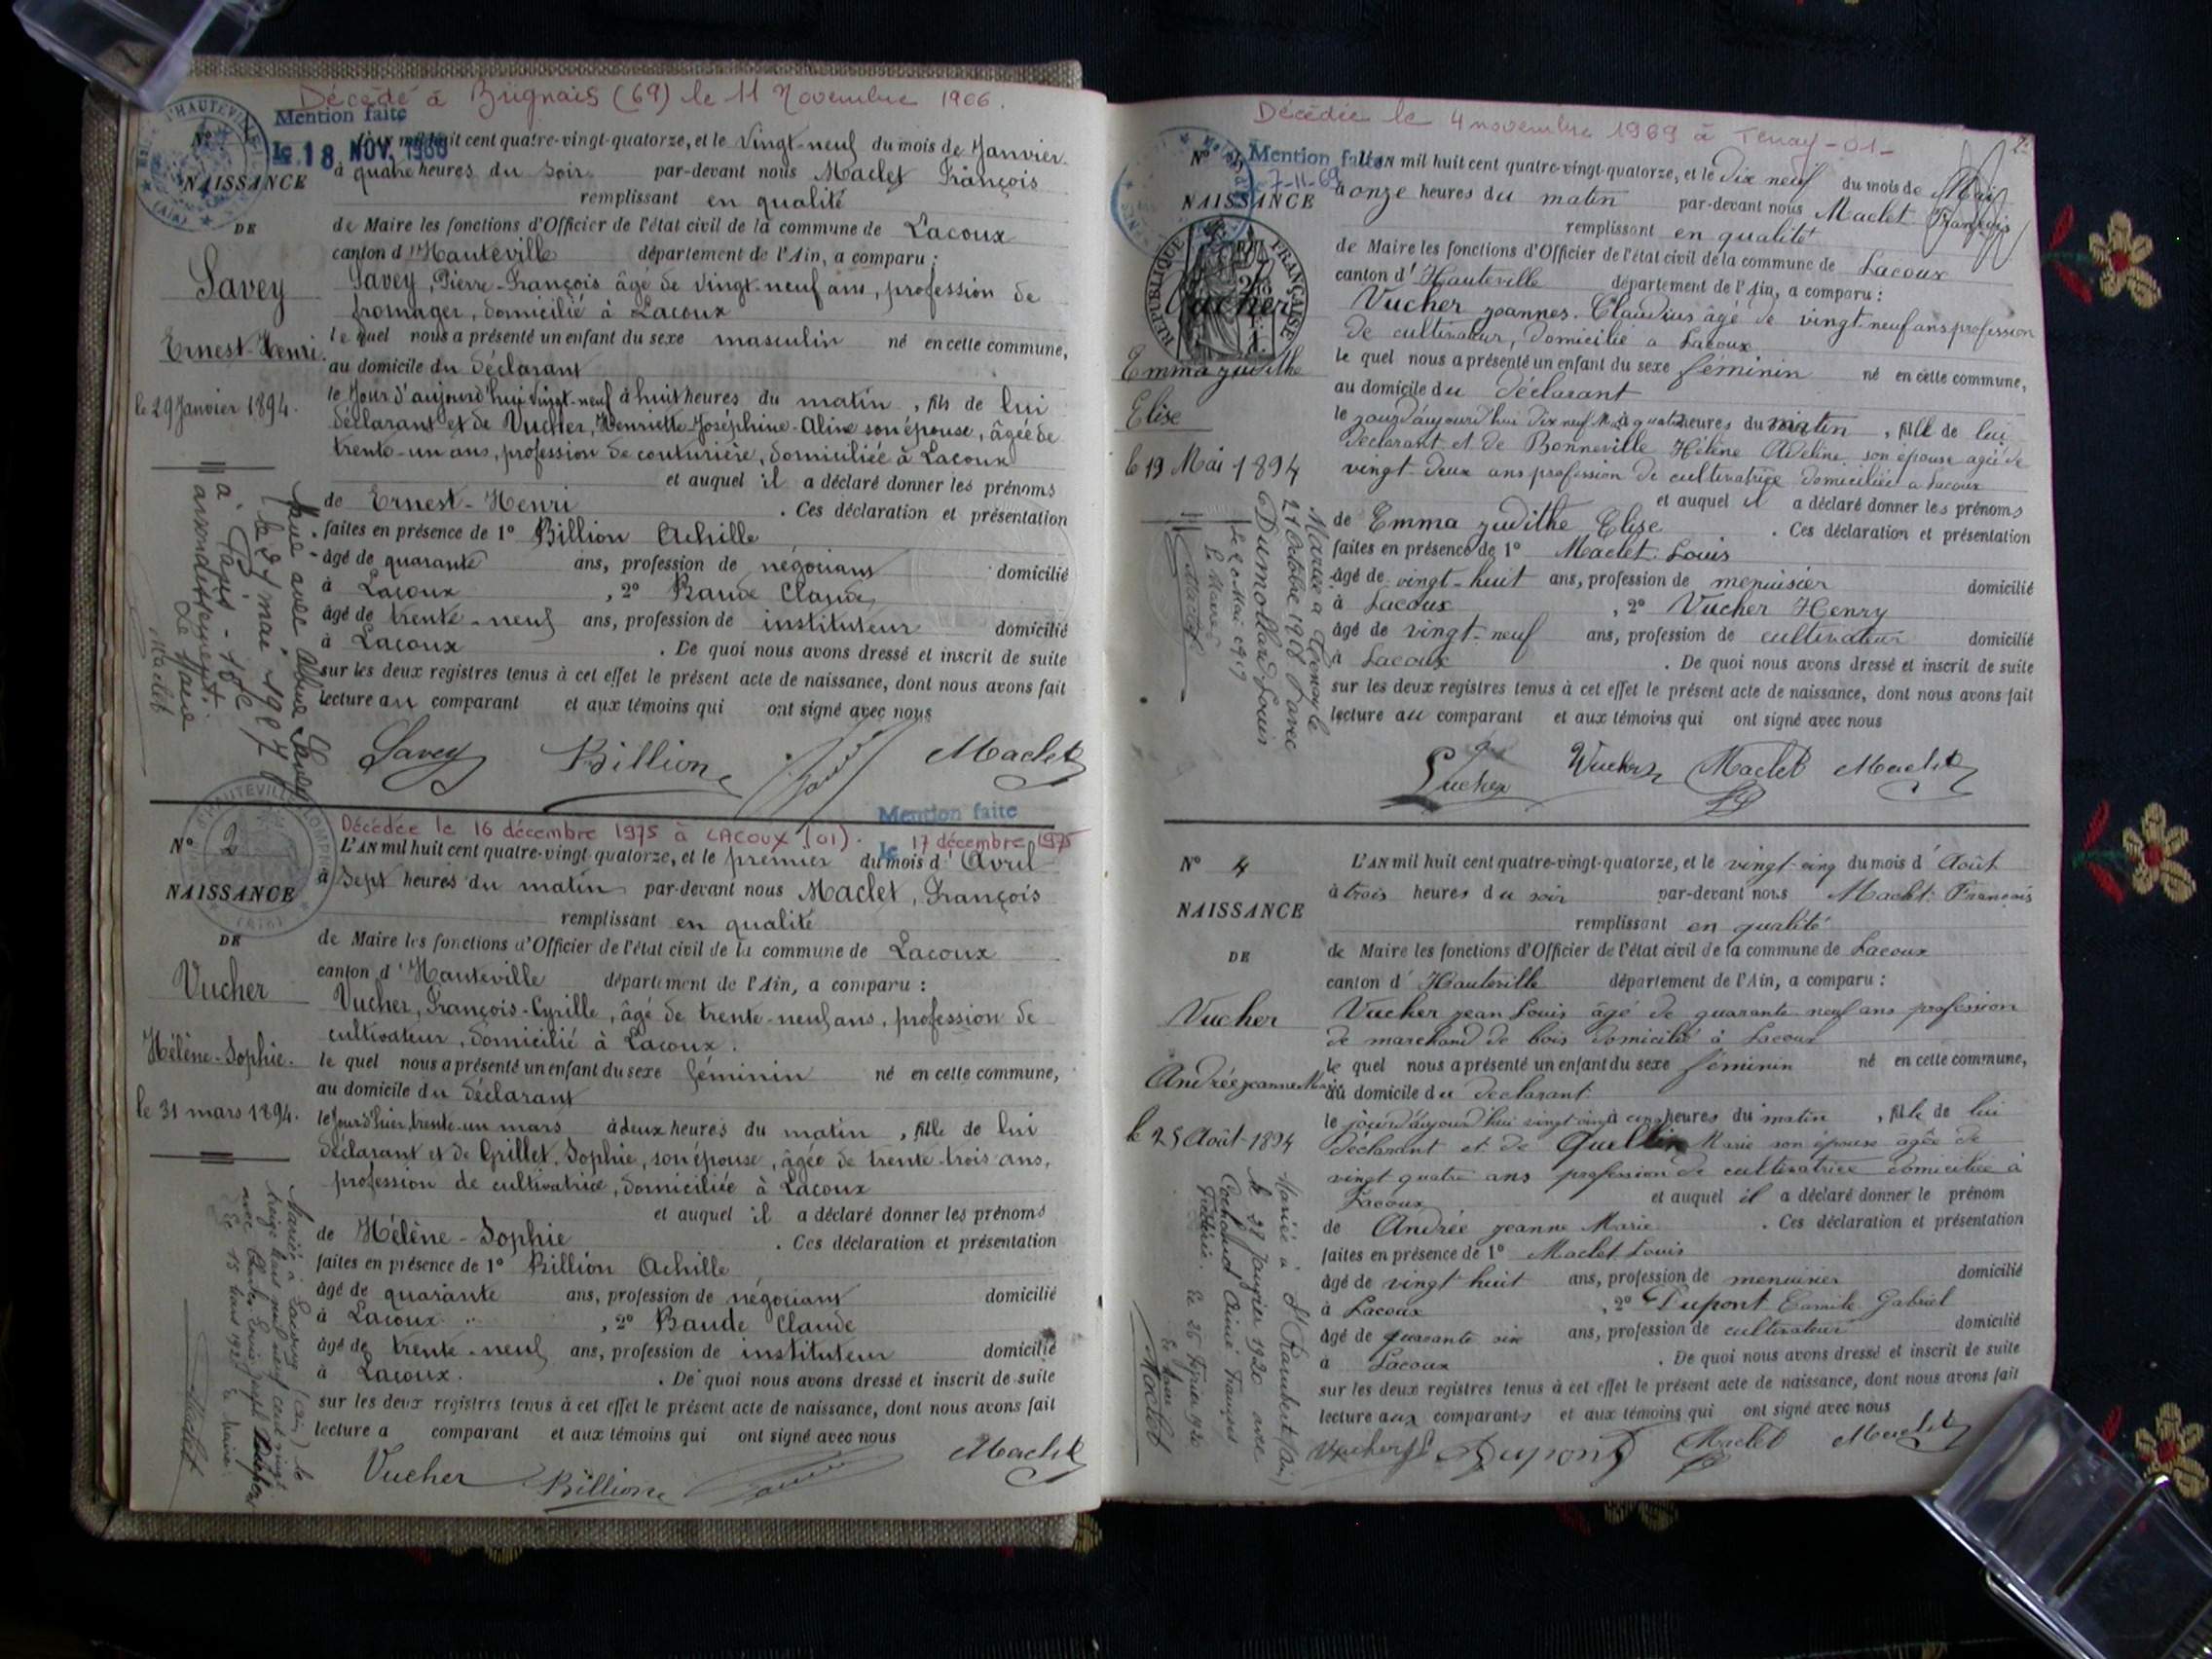 Décédé à Brignais (69) le 11 Novembre 1966.
Mention faite
le 18 NOV. 1966
N°
NAISSANCE
DE
Savey
Ernest-Henri.
le 29 Janvier 1894.
L'AN mil huit cent quatre-vingt-quatorze, et le Vingt-neuf du mois de Janvier
à quatre heures du soir par-devant nous Maclet François
remplissant en qualité
de Maire les fonctions d'Officier de l'état civil de la commune de Lacoux
canton d'Hauteville département de l'Ain, a comparu :
Savey, Pierre-François âgé de vingt-neuf ans, profession de
fromager, domicilié à Lacoux
le quel nous a présenté un enfant du sexe masculin né en cette commune,
au domicile du déclarant
le jour d'aujourd'hui vingt-neuf à huit heures du matin, fils de lui
déclarant et de Vucher, Henriette-Joséphine-Aline son épouse, âgée de
trente-un ans, profession de couturière, domiciliée à Lacoux
et auquel il a déclaré donner les prénoms
de Ernest-Henri . Ces déclaration et présentation
faites en présence de 1° Billion Achille
âgé de quarante ans, profession de négociant domicilié
à Lacoux , 2° Baude Claude
âgé de trente-neuf ans, profession de instituteur domicilié
à Lacoux . De quoi nous avons dressé et inscrit de suite
sur les deux registres tenus à cet effet le présent acte de naissance, dont nous avons fait
lecture au comparant et aux témoins qui ont signé avec nous
Savey Billion Baude Maclet
le 7 mai
à Paris - 18e
arrondissement.
Le Maire
Maclet
Décédée le 16 décembre 1975 à LACOUX (01).
Mention faite
le 17 décembre 1975
N° 2
NAISSANCE
DE
Vucher
Hélène-Sophie.
le 31 mars 1894.
L'AN mil huit cent quatre-vingt-quatorze, et le premier du mois d'Avril
à sept heures du matin par-devant nous Maclet, François
remplissant en qualité
de Maire les fonctions d'Officier de l'état civil de la commune de Lacoux
canton d'Hauteville département de l'Ain, a comparu :
Vucher, François-Cyrille, âgé de trente-neuf ans, profession de
cultivateur, domicilié à Lacoux.
le quel nous a présenté un enfant du sexe féminin né en cette commune,
au domicile du déclarant
le jour d'hier, trente-un mars à deux heures du matin, fille de lui
déclarant et de Grillet, Sophie, son épouse, âgée de trente-trois ans,
profession de cultivatrice, domiciliée à Lacoux
et auquel il a déclaré donner les prénoms
de Hélène-Sophie . Ces déclaration et présentation
faites en présence de 1° Billion Achille
âgé de quarante ans, profession de négociant domicilié
à Lacoux , 2° Baude Claude
âgé de trente-neuf ans, profession de instituteur domicilié
à Lacoux. . De quoi nous avons dressé et inscrit de suite
sur les deux registres tenus à cet effet le présent acte de naissance, dont nous avons fait
lecture a comparant et aux témoins qui ont signé avec nous
Vucher Billion Baude Maclet
Mariée à Lacoux (Ain) le
treize mars mil neuf cent vingt
avec Charles Louis Joseph
Le 15 mars 192 Le Maire
Maclet
Décédée le 4 novembre 1969 à Tenay-01-
2
Mention faite
7-11-69
N°
NAISSANCE
RÉPUBLIQUE FRANÇAISE
Vucher
Emma Judithe
Elise
le 19 Mai 1894
L'AN mil huit cent quatre-vingt-quatorze, et le dix neuf du mois de Mai
à onze heures du matin par-devant nous Maclet François
remplissant en qualité
de Maire les fonctions d'Officier de l'état civil de la commune de Lacoux
canton d'Hauteville département de l'Ain, a comparu :
Vucher Joannes Claudius âgé de vingt-neuf ans profession
de cultivateur, domicilié à Lacoux
le quel nous a présenté un enfant du sexe féminin né en cette commune,
au domicile du déclarant
le jour d'aujourd'hui dix neuf Mai à quatre heures du matin, fille de lui
déclarant et de Bonneville Hélène Adeline son épouse agée de
vingt-deux ans profession de cultivatrice domiciliée a Lacoux
et auquel il a déclaré donner les prénoms
de Emma Judithe Elise . Ces déclaration et présentation
faites en présence de 1° Maclet Louis
âgé de vingt-huit ans, profession de menuisier domicilié
à Lacoux , 2° Vucher Henry
âgé de vingt-neuf ans, profession de cultivateur domicilié
à Lacoux . De quoi nous avons dressé et inscrit de suite
sur les deux registres tenus à cet effet le présent acte de naissance, dont nous avons fait
lecture au comparant et aux témoins qui ont signé avec nous
Vucher Vucher Maclet Maclet
Mariée à Tenay le
21 Octobre 1918 avec
Dumollard Louis
Le 20 Mai 1919
Le Maire
Maclet
N° 4
NAISSANCE
DE
Vucher
Andrée Jeanne Marie
le 25 Août 1894
L'AN mil huit cent quatre-vingt-quatorze, et le vingt-cinq du mois d'Août
à trois heures du soir par-devant nous Maclet François
remplissant en qualité
de Maire les fonctions d'Officier de l'état civil de la commune de Lacoux
canton d'Hauteville département de l'Ain, a comparu :
Vucher Jean Louis âgé de quarante-neuf ans profession
de marchand de bois domicilié à Lacoux
le quel nous a présenté un enfant du sexe féminin né en cette commune,
au domicile du declarant
le jour d'aujourd'hui vingt cinq à cinq heures du matin, fille de lui
déclarant et de Marie son épouse âgée de
vingt quatre ans profession de cultivatrice domiciliée à
Lacoux et auquel il a déclaré donner le prénom
de Andrée Jeanne Marie . Ces déclaration et présentation
faites en présence de 1° Maclet Louis
âgé de vingt huit ans, profession de menuisier domicilié
à Lacoux , 2° Dupont Camile Gabriel
âgé de quarante six ans, profession de cultivateur domicilié
à Lacoux . De quoi nous avons dressé et inscrit de suite
sur les deux registres tenus à cet effet le présent acte de naissance, dont nous avons fait
lecture aux comparants et aux témoins qui ont signé avec nous
Vucher Dupont Maclet Maclet
Mariée à St Rambert (Ain)
le 28 Janvier 1920 avec
Aimé François
Frédéric. Le 26 février 1920
Le Maire
Maclet